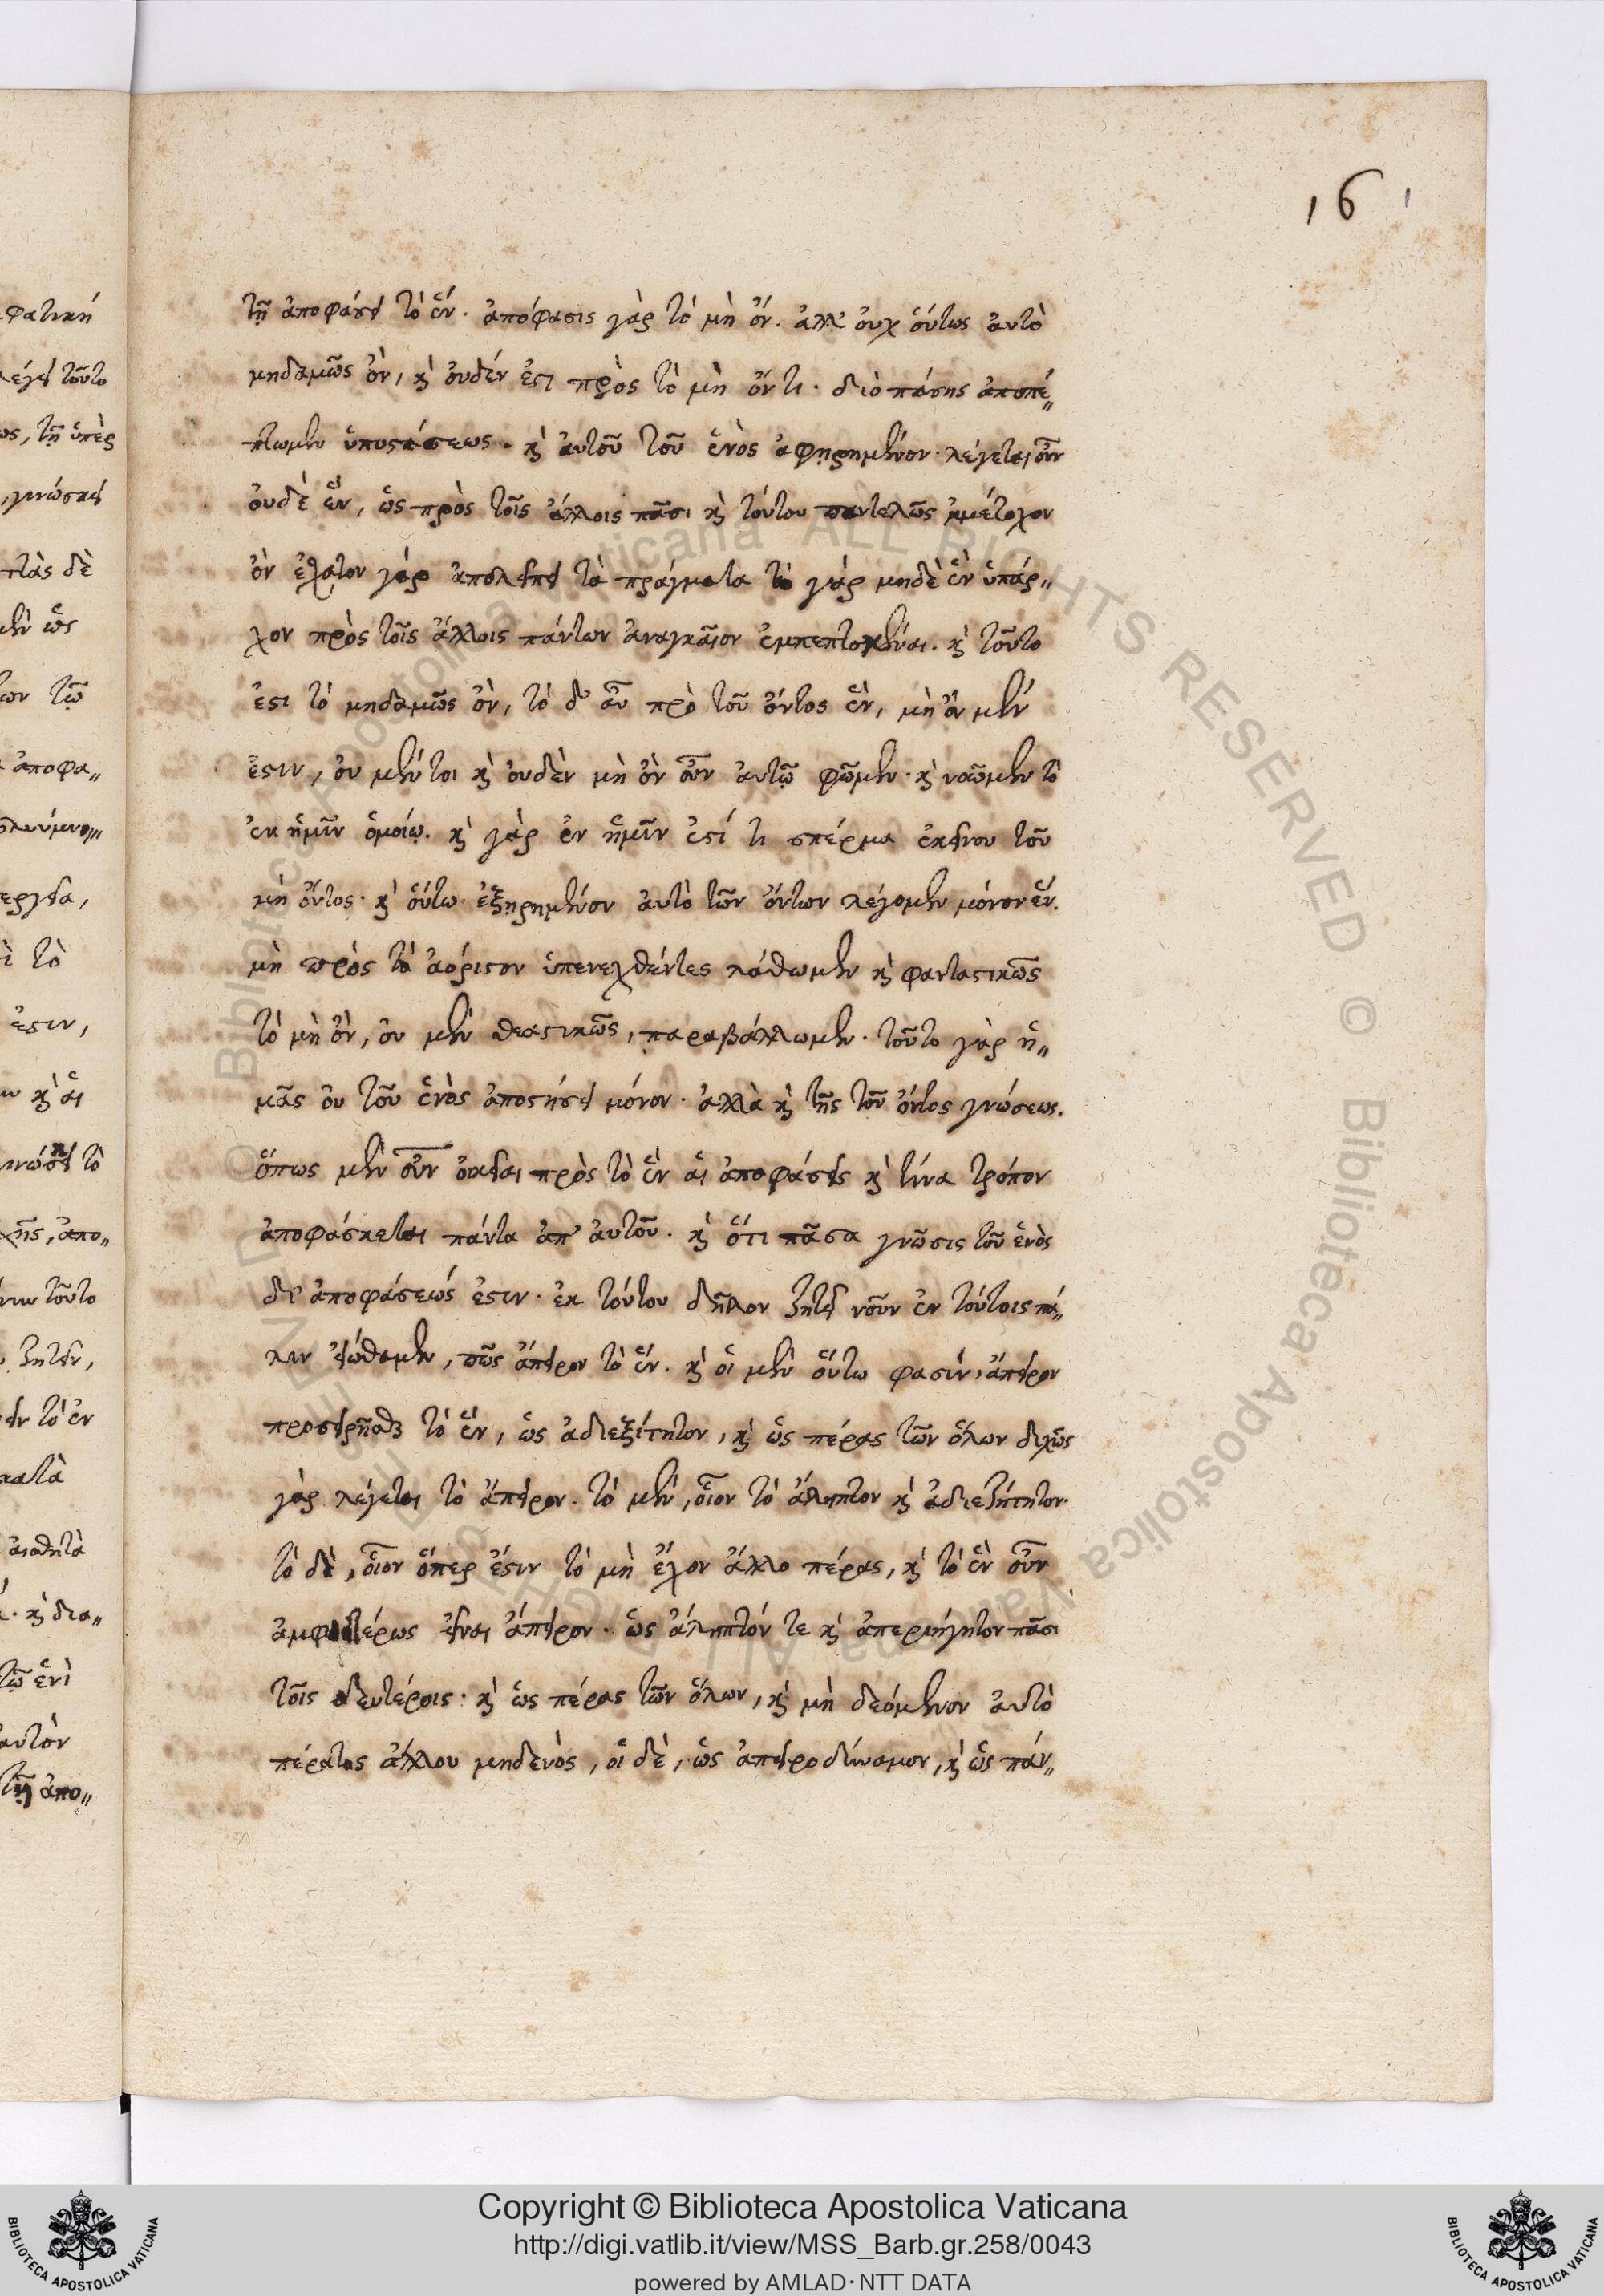 16
τῇ ἀποφάσει τὸ ἕν. ἀπόφασις γὰρ τὸ μὴ ὄν. ἀλλ' οὐχ οὕτως αὐτὸ
μηδαμῶς ὂν, καὶ οὐδέν ἐστι πρὸς τὸ μὴ ὄν τι. διὸ πάσης ἀποπέ„
πτωμεν ὑποστάσεως. καὶ αὐτοῦ τοῦ ἑνὸς ἀφῃρημένον. λέγεται οὖν
οὐδὲ ἓν, ὡς πρὸς τοῖς ἄλλοις πᾶσι καὶ τούτου παντελῶς ἀμέτοχον
ὂν ἔσχατον γὰρ ἀπολείπει τὰ πράγματα τὸ γὰρ μηδὲ ἓν ὑπάρ„
χον πρὸς τοῖς ἄλλοις πάντων ἀναγκαῖον ἐμπεπτοκέναι. καὶ τοῦτο
ἐστι τὸ μηδαμῶς ὂν, τὸ δ' αὖ πρὸ τοῦ ὄντος ἓν, μὴ ὂν μέν
ἐστιν, οὐ μέντοι καὶ οὐδὲν μὴ ὂν οὖν αὐτῷ φῶμεν. καὶ νοῶμεν τὸ
ἐκ ἡμῖν ὁμοίῳ. καὶ γὰρ ἐν ἡμῖν ἐστί τι σπέρμα ἐκείνου τοῦ
μὴ ὄντος. καὶ οὕτω ἐξῃρημένον αὐτὸ τῶν ὄντων λέγομεν μόνον ἕν.
μὴ πρὸς τὰ ἀόριστον ὑπενεχθέντες λάθωμεν καὶ φανταστικῶς
τὸ μὴ ὂν, οὐ μὲν θεαστικῶς, παραβάλλωμεν. τοῦτο γὰρ ἡ„
μᾶς οὐ τοῦ ἑνὸς ἀποστήσει μόνον. ἀλλὰ καὶ τῆς τοῦ ὄντος γνώσεως.
ὅπως μὲν οὖν οἰκεῖαι πρὸς τὸ ἓν αἱ ἀποφάσεις καὶ τίνα τρόπον
ἀποφάσκεται πάντα ἀπ' αὐτοῦ. καὶ ὅτι πᾶσα γνῶσις τοῦ ἑνὸς
δι' ἀποφάσεώς ἐστιν. ἐκ τούτου δῆλον ζητεῖ νοῦν ἐν τούτοις πά„
λιν εἰώθαμεν, πῶς ἄπειρον τὸ ἕν. καὶ οἱ μὲν οὕτω φασίν, ἄπειρον
προσειρῆσθαι τὸ ἓν, ὡς ἀδιεξίτητον, καὶ ὡς πέρας τῶν ὅλων διχῶς
γὰρ λέγεται τὸ ἄπειρον. τὸ μὲν, οἷον τὸ ἄληπτον καὶ ἀδιεζήτητον.
τὸ δὲ, οἷον ὅπερ ἐστιν τὸ μὴ ἔχον ἄλλο πέρας, καὶ τὸ ἓν οὖν
ἀμφοτέρως εἶναι ἄπειρον. ὡς ἄληπτόν τε καὶ ἀπερμήγητον πᾶσι
τοῖς δευτέροις: καὶ ὡς πέρας τῶν ὅλων, καὶ μὴ δεόμενον αὐτὸ
πέρατος ἄλλου μηδενὸς, οἱ δὲ, ὡς ἀπειροδύναμον, καὶ ὡς πάν„
Copyright © Biblioteca Apostolica Vaticana
http://digi.vatlib.it/view/MSS_Barb.gr.258/0043
powered by AMLAD·NTT DATA